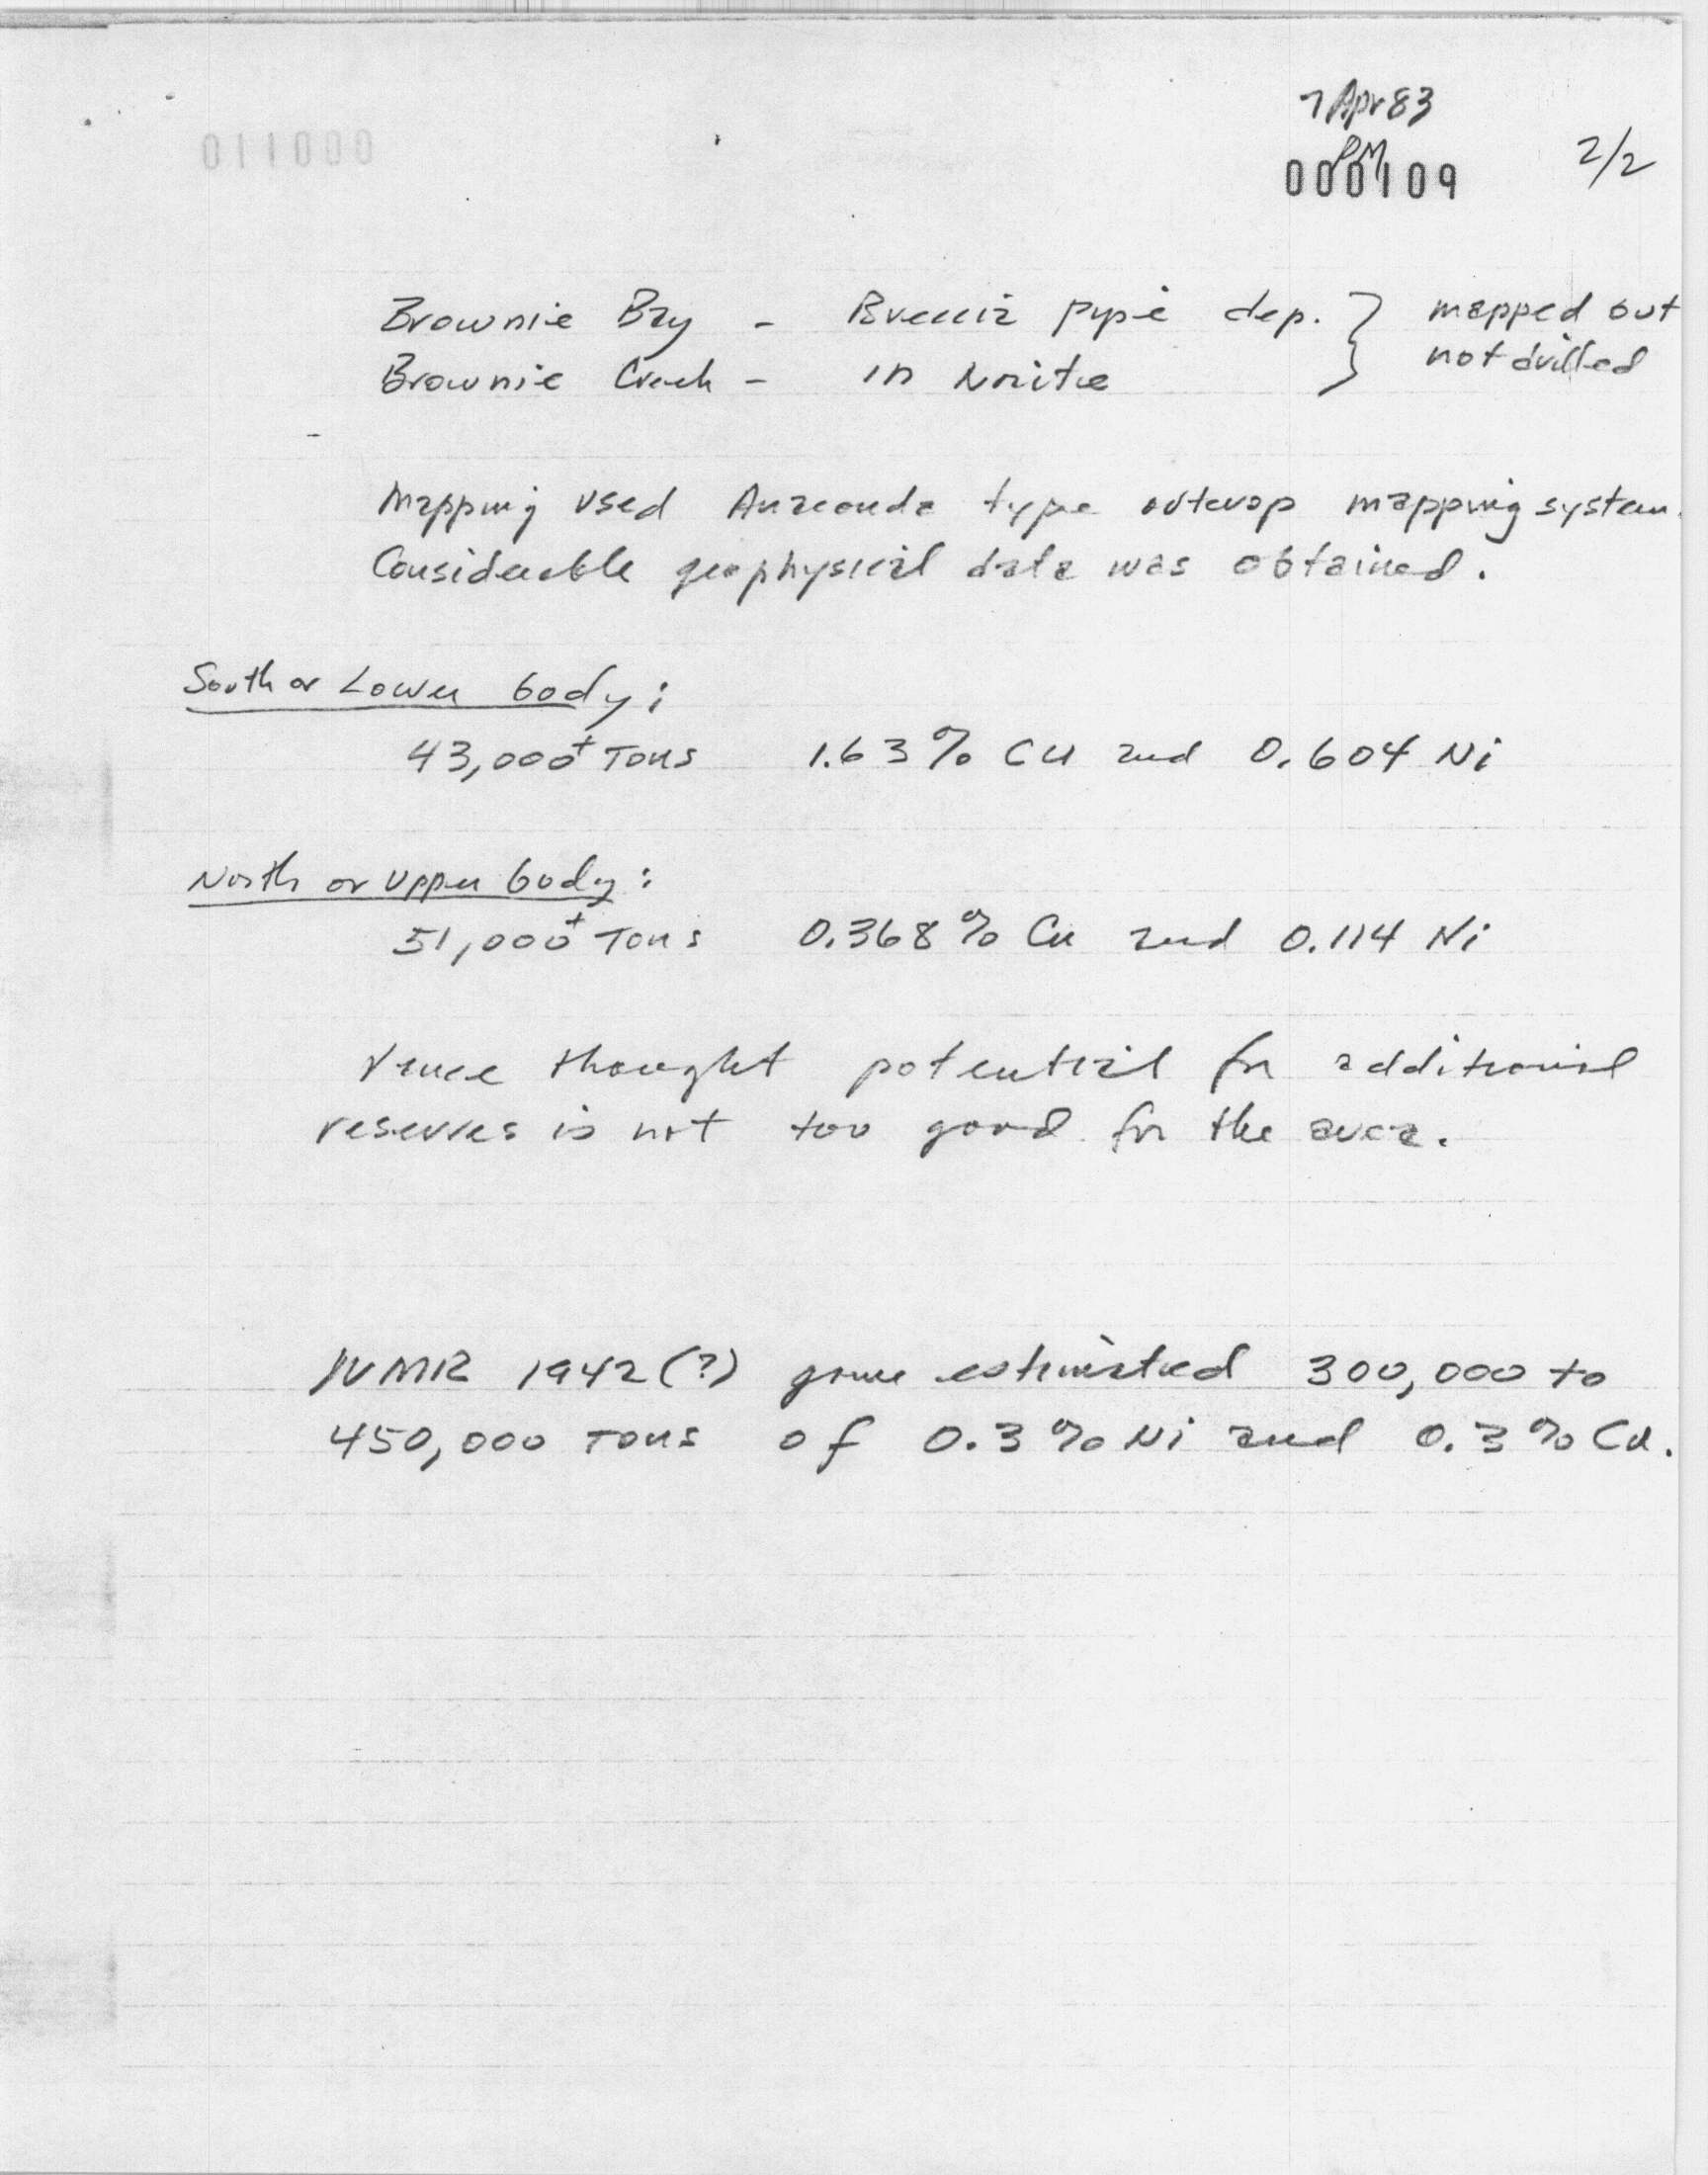 7 Apr 83
PM
000109
2/2
011000
Brownie Bay - Breccia pipe dep. } mapped out
Brownie Creek - in Norite not drilled
Mapping used Anaconda type outcrop mapping system.
Considerable geophysical data was obtained.
South or Lower body;
43,000+ Tons 1.63% Cu and 0.604 Ni
North or Upper body:
51,000+ Tons 0.368% Cu and 0.114 Ni
Vence thought potential for additional
reserves is not too good for the area.
1942(?) estimated 300,000 to
450,000 Tons of 0.3% Ni and 0.3% Cu.